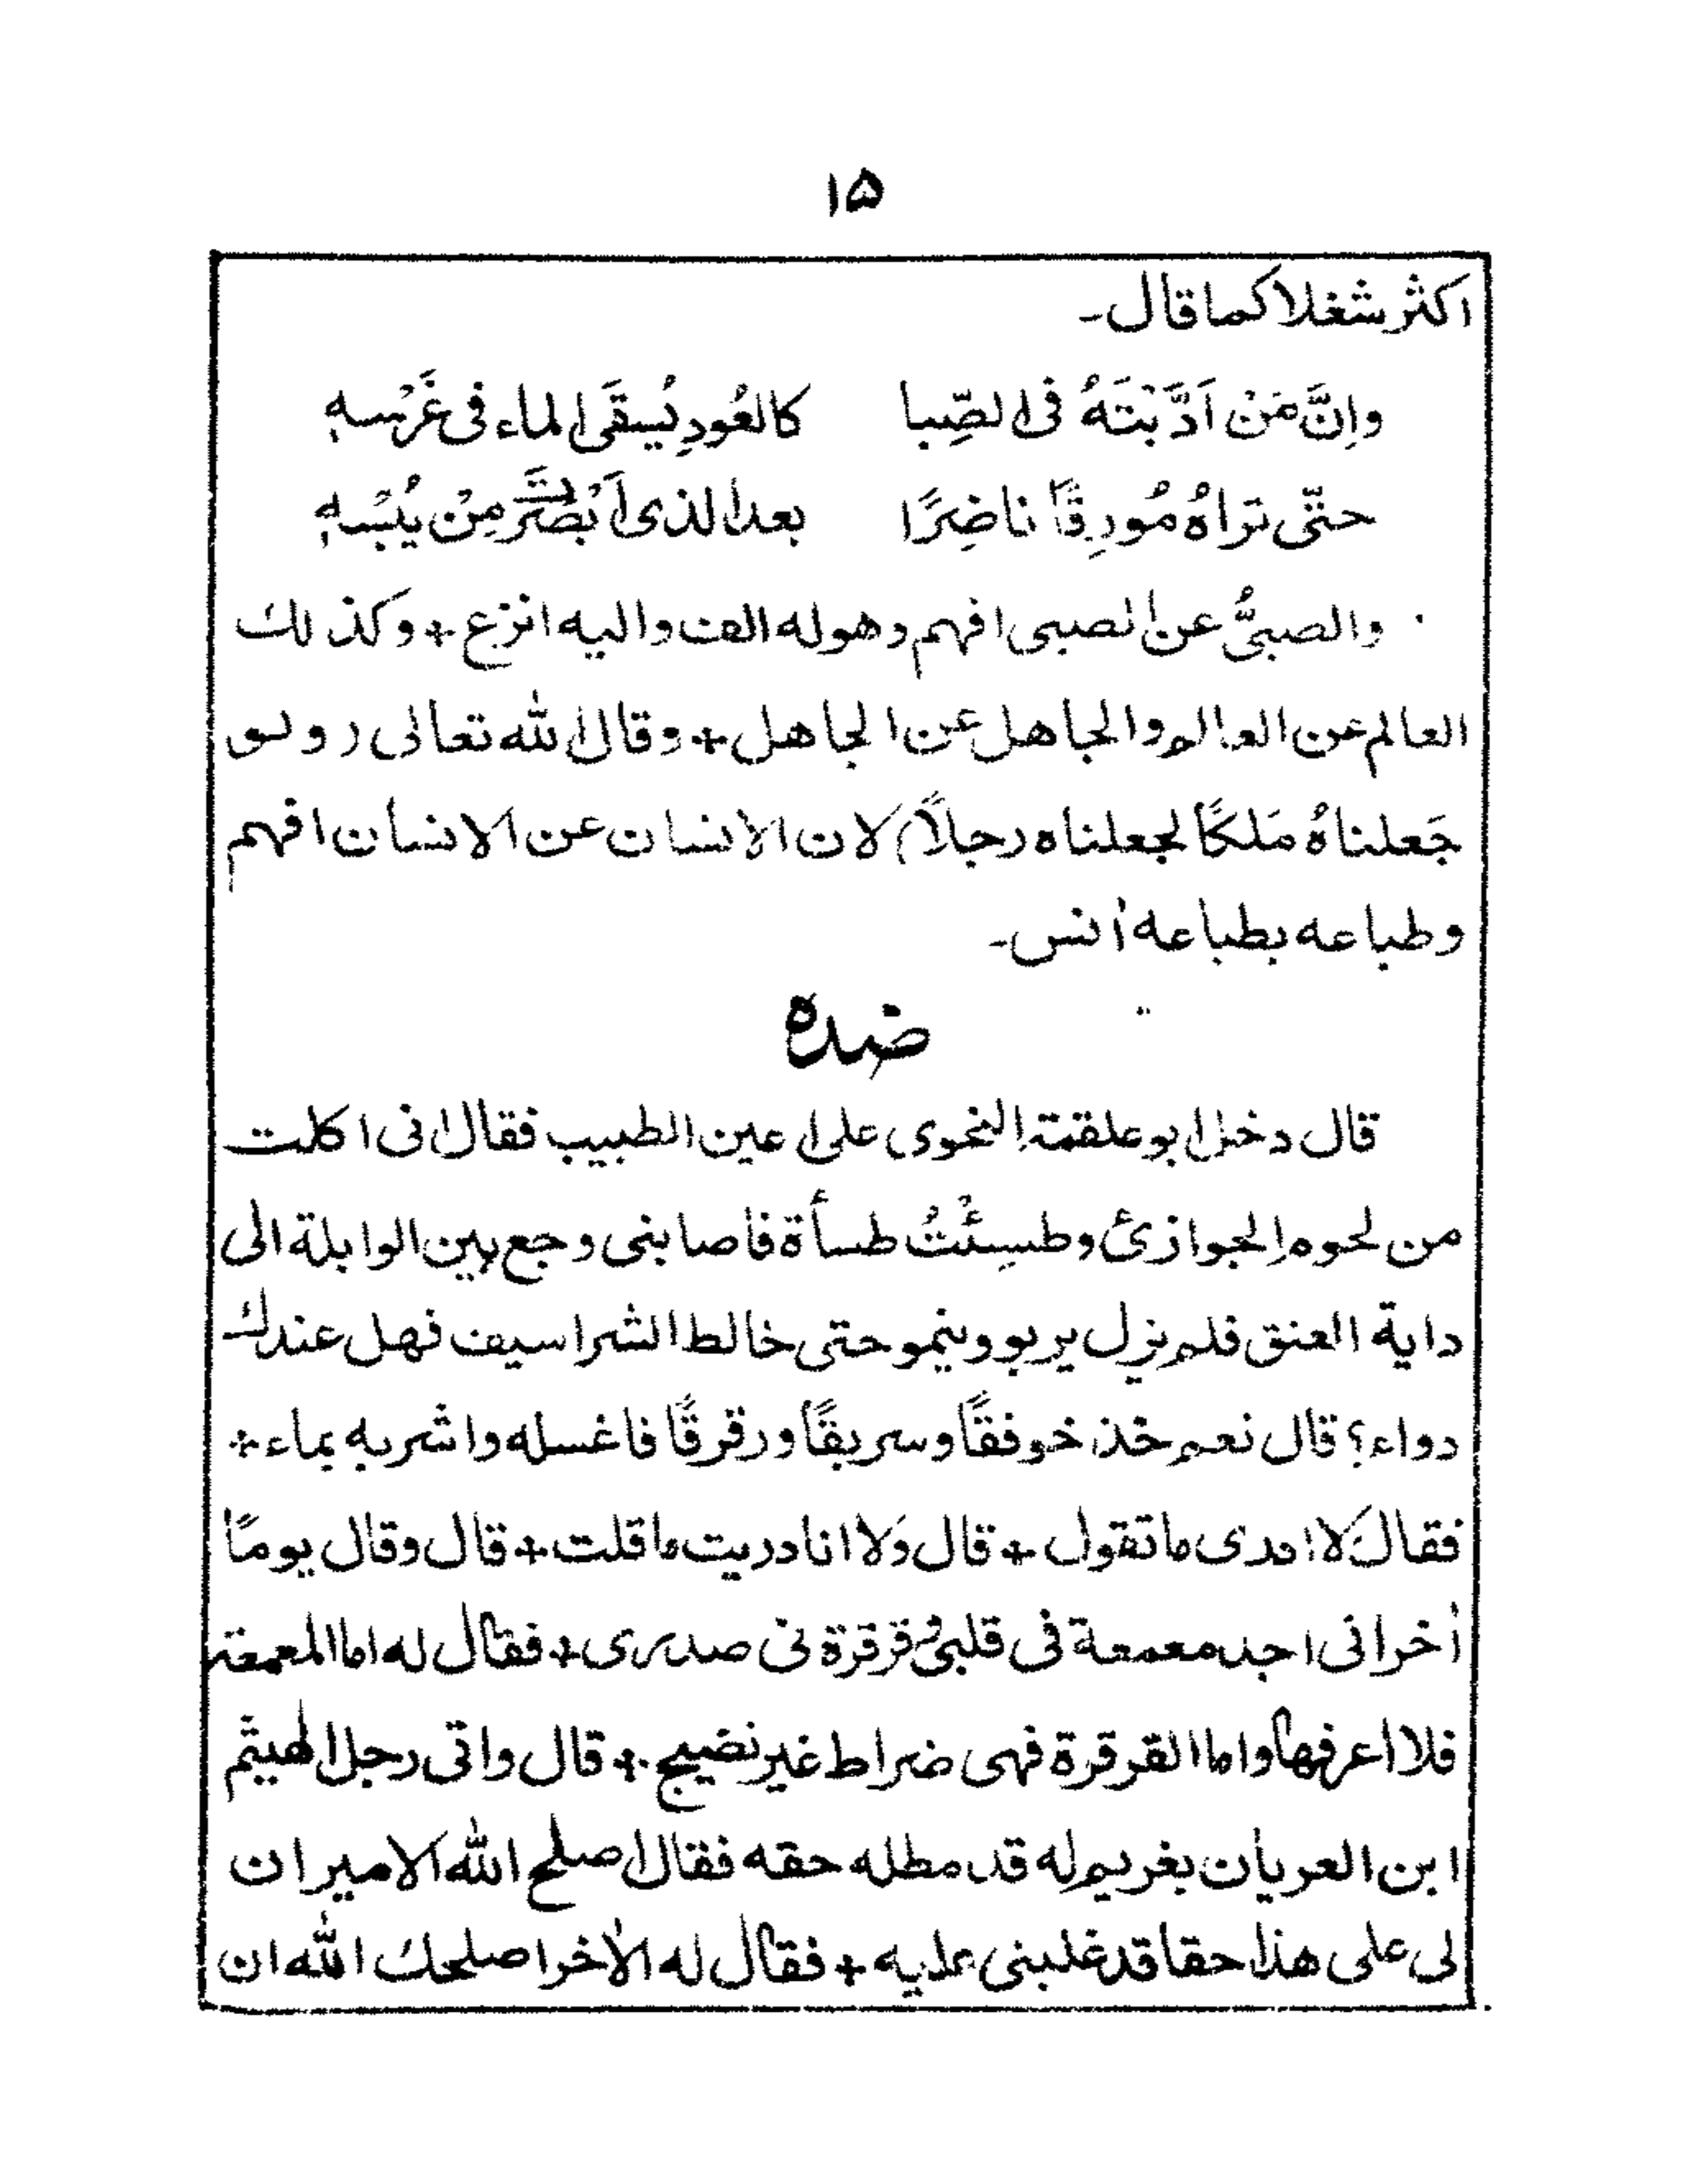 ۱۵
اكثر شغلا كما قال۔
وإِنَّ مَنْ اَدَّبْتَهُ فى الصِّبا كالعُودِ يُسقَى الماء فى غَرْسهِ
حتّى تراهُ مُورِقًا ناضِرًا بعد الذى اَبْصَرتَ مِنْ يُبْسهِ
والصبىُّ عن الصبى افهم وهو له الف واليه انزع + وكذلك
العالم عن العالم والجاهل عن الجاهل + وقال الله تعالى (ولو
جَعلناهُ مَلكًا لجعلناه رجلاً) لان الانسان عن الانسان افهم
وطباعه بطباعه اٰنس۔
ضده
قال دخل ابو علقمة النحوى على اعين الطبيب فقال انى اكلت
من لحوم الجوازئ وطسِئْتُ طسأة فاصابنى وجع بين الوابلة الى
داية العنق فلم يزل يربو وينمو حتى خالط الشراسيف فهل عندك
دواء؟ قال نعم خذ خوفقًا وسربقًا ورقرقًا فاغسله واشربه بماء +
فقال لا ادرى ما تقول + قال وَلا انا دريت ما قلت + قال وقال يومًا
اٰخر انى اجد معمعة فى قلبى وقرقرة فى صدرى + فقال له اما المعمعة
فلا اعرفها واما القرقرة فهى ضراط غير نضيج + قال واتى رجل الهيثم
ابن العريان بغريم له قد مطله حقه فقال اصلح الله الامير ان
لى على هذا حقا قد غلبنى عليه + فقال له الاٰخر اصلحك الله ان